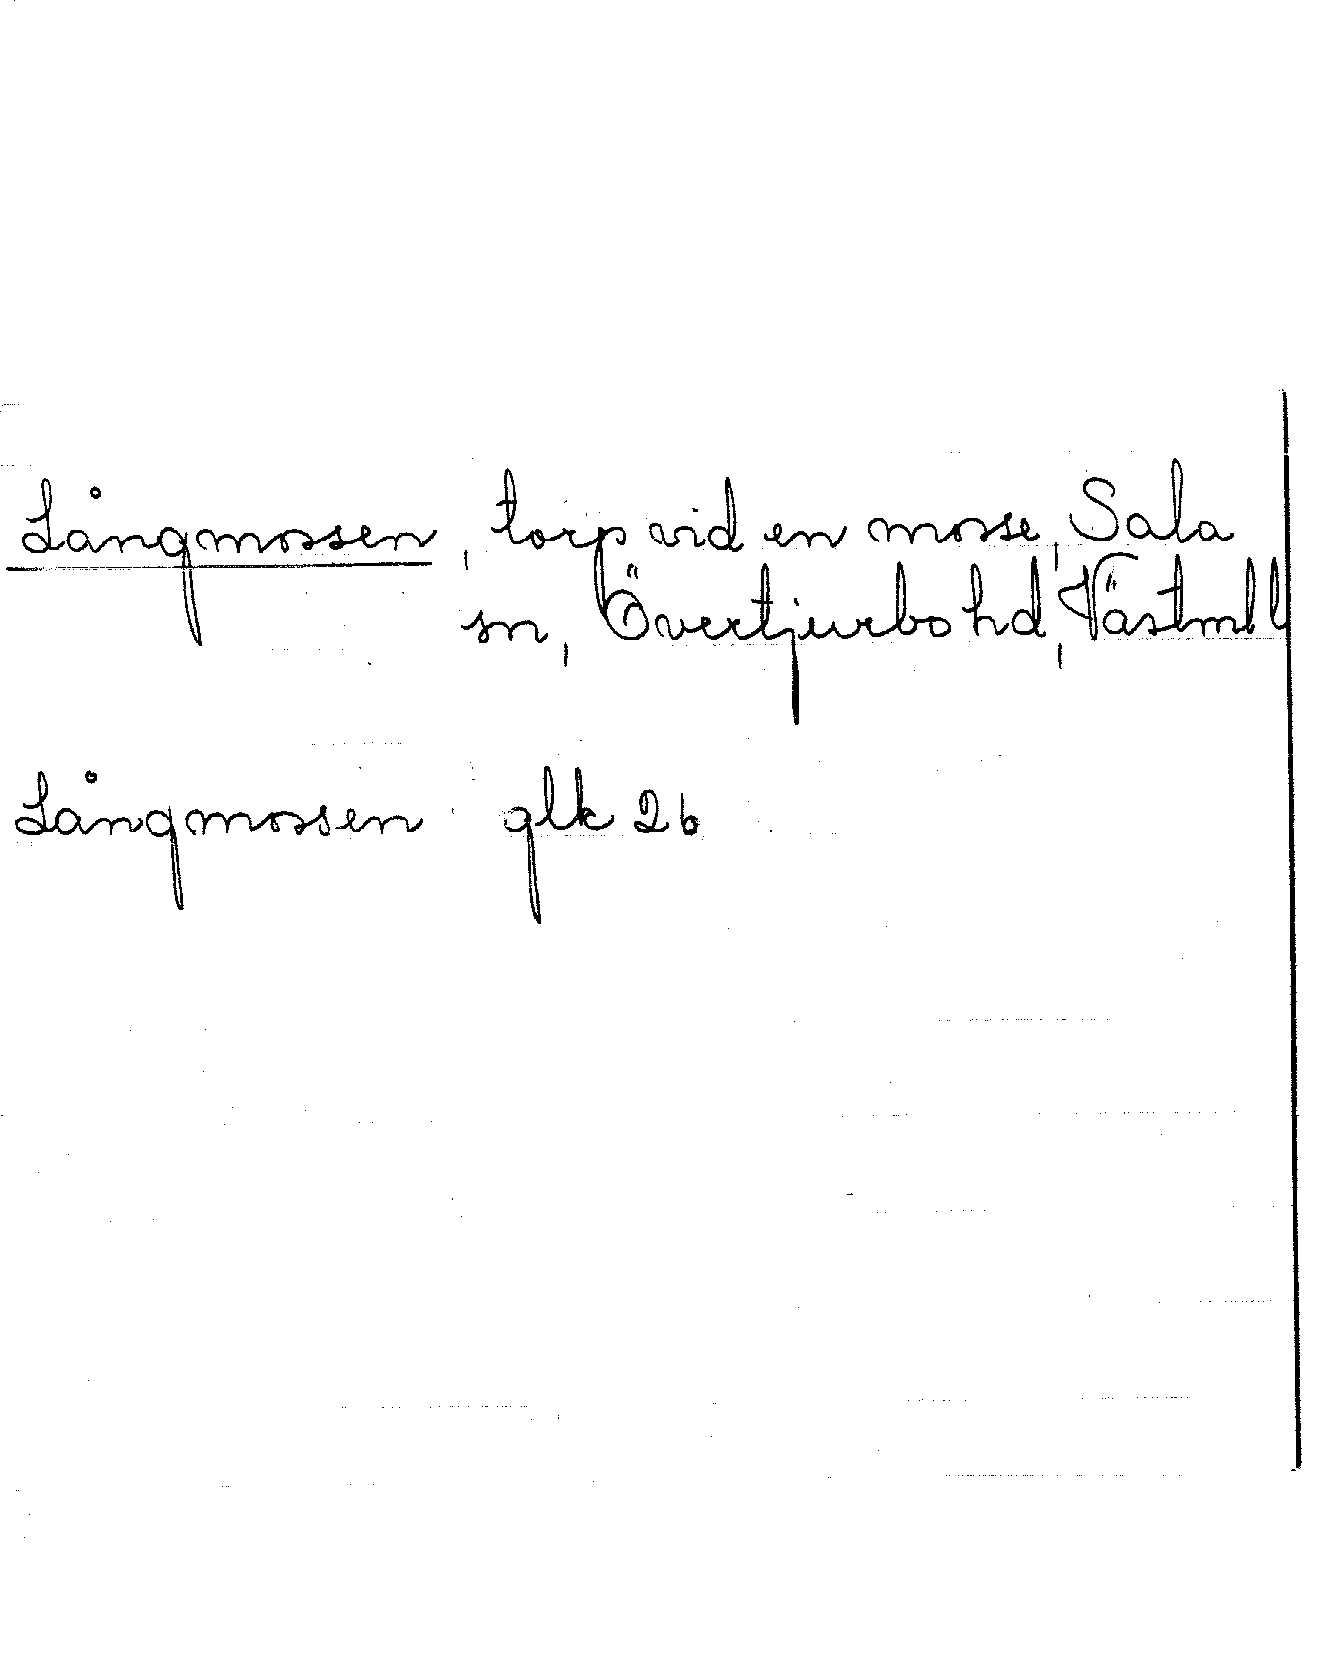 Långmossen, torp vid en mosse, Sala
sn, Övertjurbo hd, Västmll
Långmossen glk 26